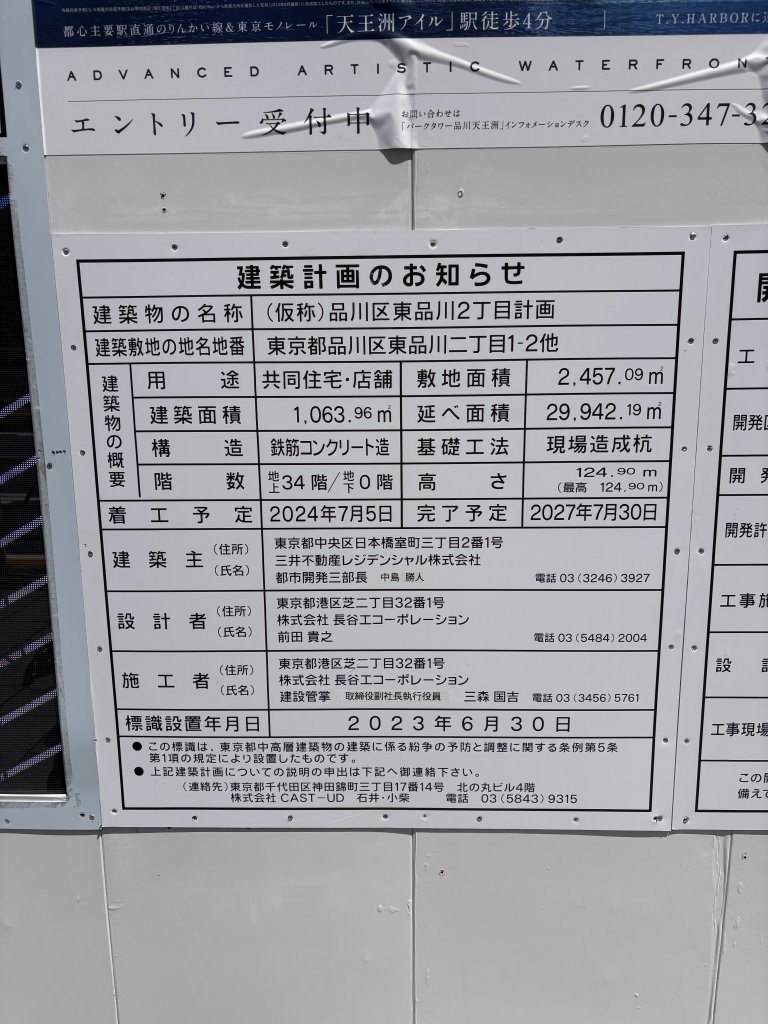 都心主要駅直通のりんかい線&東京モノレール「天王洲アイル」駅徒歩4分
T.Y.HARBORに
ADVANCED ARTISTIC WATERFRONT
エントリー受付中
お問い合わせは
「パークタワー品川天王洲」インフォメーションデスク
0120-347-32
建築計画のお知らせ
建築物の名称 (仮称)品川区東品川2丁目計画
建築敷地の地名地番 東京都品川区東品川二丁目1-2他
建築物の概要
用途 共同住宅・店舗 敷地面積 2,457.09㎡
建築面積 1,063.96㎡ 延べ面積 29,942.19㎡
構造 鉄筋コンクリート造 基礎工法 現場造成杭
階数 地上34階/地下0階 高さ 124.90m
(最高 124.90m)
着工予定 2024年7月5日 完了予定 2027年7月30日
建築主 (住所) 東京都中央区日本橋室町三丁目2番1号
(氏名) 三井不動産レジデンシャル株式会社
都市開発三部長 中島 勝人 電話03(3246)3927
設計者 (住所) 東京都港区芝二丁目32番1号
(氏名) 株式会社 長谷工コーポレーション
前田 貴之 電話03(5484)2004
施工者 (住所) 東京都港区芝二丁目32番1号
(氏名) 株式会社 長谷工コーポレーション
建設管掌 取締役副社長執行役員 三森 国吉 電話03(3456)5761
標識設置年月日 2023年6月30日
●この標識は、東京都中高層建築物の建築に係る紛争の予防と調整に関する条例第5条
第1項の規定により設置したものです。
●上記建築計画についての説明の申出は下記へ御連絡下さい。
(連絡先)東京都千代田区神田錦町三丁目17番14号 北の丸ビル4階
株式会社 CAST-UD 石井・小柴 電話 03(5843)9315
開
工
開発区
開発
開発許
工事施
設計
工事現場
この開
備えて